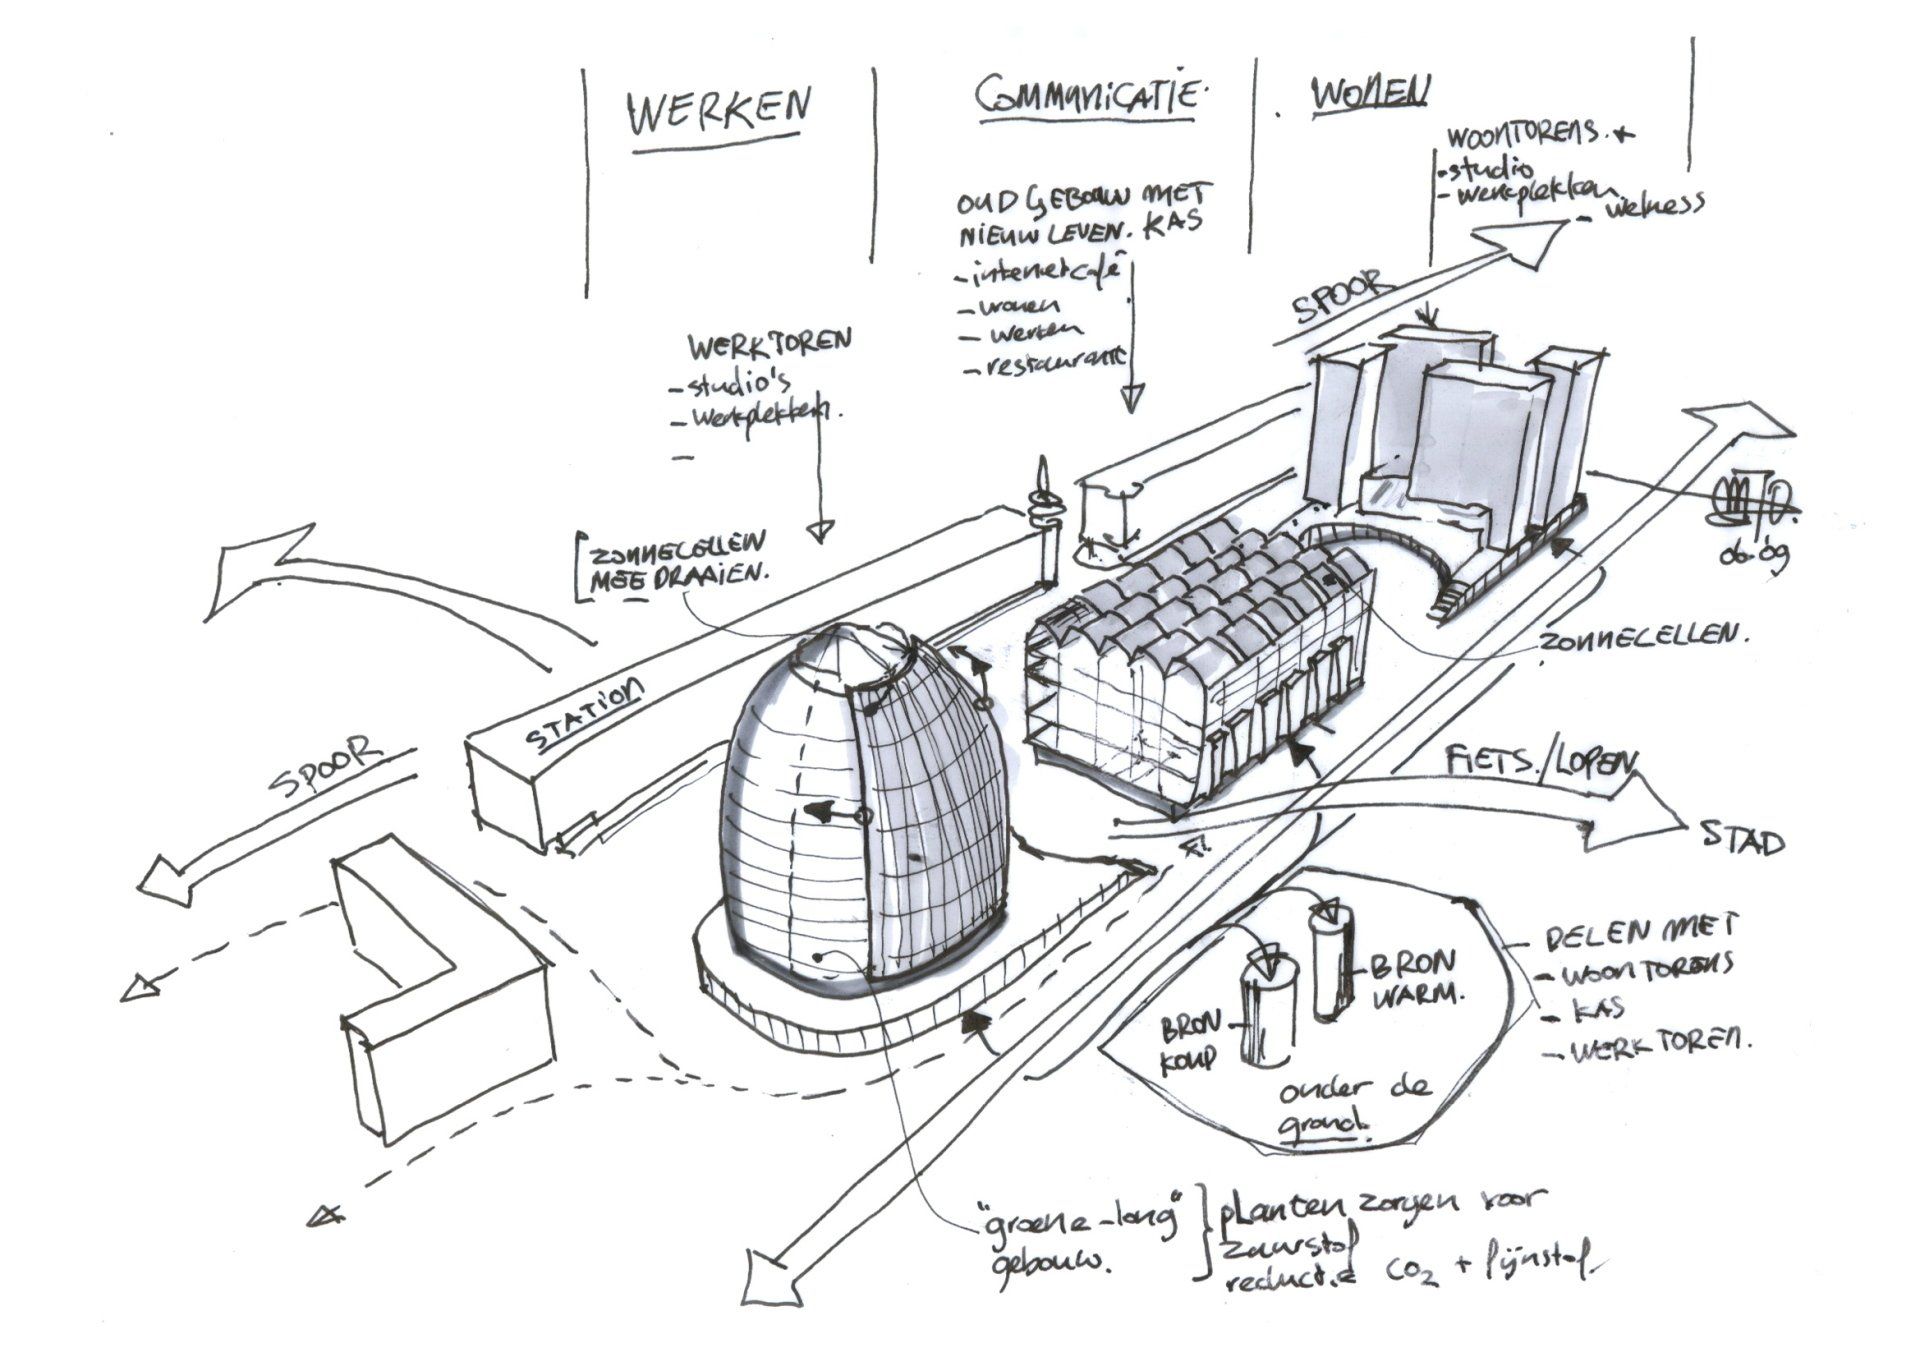 WERKEN
COMMUNICATIE.
WONEN
WOONTORENS.
- studio
- werkplekken
- welness
OUD GEBOUW MET
NIEUW LEVEN. KAS
- internetcafé
- wonen
- werken
- restaurante
SPOOR
WERKTOREN
- studio's
- werkplekken.
-
ZONNECELLEN
MEEDRAAIEN.
06-09
ZONNECELLEN.
STATION
SPOOR
FIETS./LOPEN
STAD
DELEN MET
- WOONTORENS
- KAS
- WERKTOREN.
BRON
WARM.
BRON
KOUD
onder de
grond.
"groene-long"
gebouw.
planten zorgen voor
zuurstof
reductie CO2 + fijnstof.